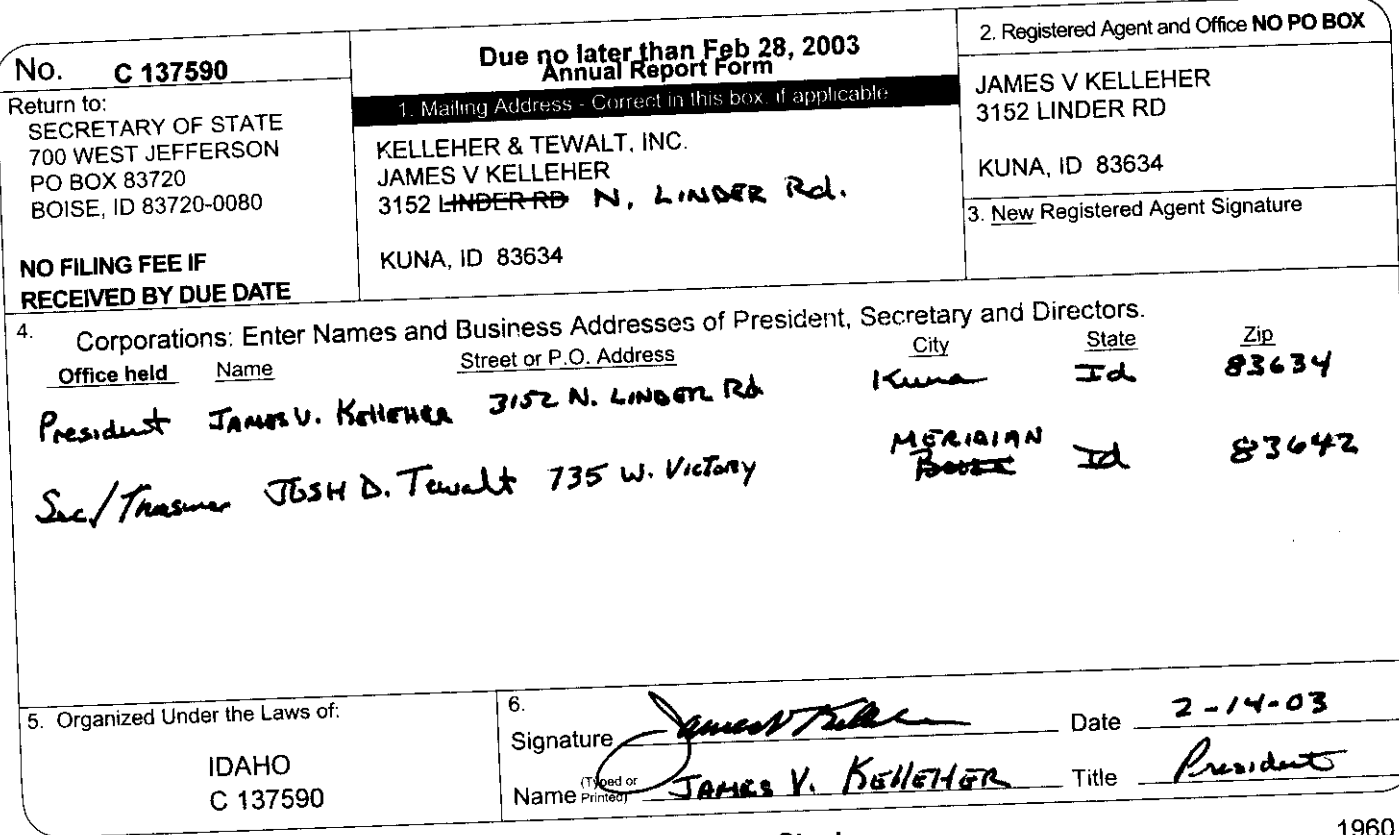 No. C 137590
Return to:
SECRETARY OF STATE
700 WEST JEFFERSON
PO BOX 83720
BOISE, ID 83720-0080
NO FILING FEE IF
RECEIVED BY DUE DATE
Due no later than Feb 28, 2003
Annual Report Form
1. Mailing Address - Correct in this box, if applicable
KELLEHER & TEWALT, INC.
JAMES V KELLEHER
3152 LINDER RD N. LINDER Rd.
KUNA, ID 83634
2. Registered Agent and Office NO PO BOX
JAMES V KELLEHER
3152 LINDER RD
KUNA, ID 83634
3. New Registered Agent Signature
4. Corporations: Enter Names and Business Addresses of President, Secretary and Directors.
Office held Name Street or P.O. Address City State Zip
President JAMES V. KELLEHER 3152 N. LINDER Rd Kuna Id 83634
Sec/Treasurer JOSH D. Tewalt 735 W. Victory MERIDIAN Id 83642
5. Organized Under the Laws of:
IDAHO
C 137590
6.
Signature James V Kelleher Date 2-14-03
Name (Typed or Printed) JAMES V. KELLEHER Title President
1960